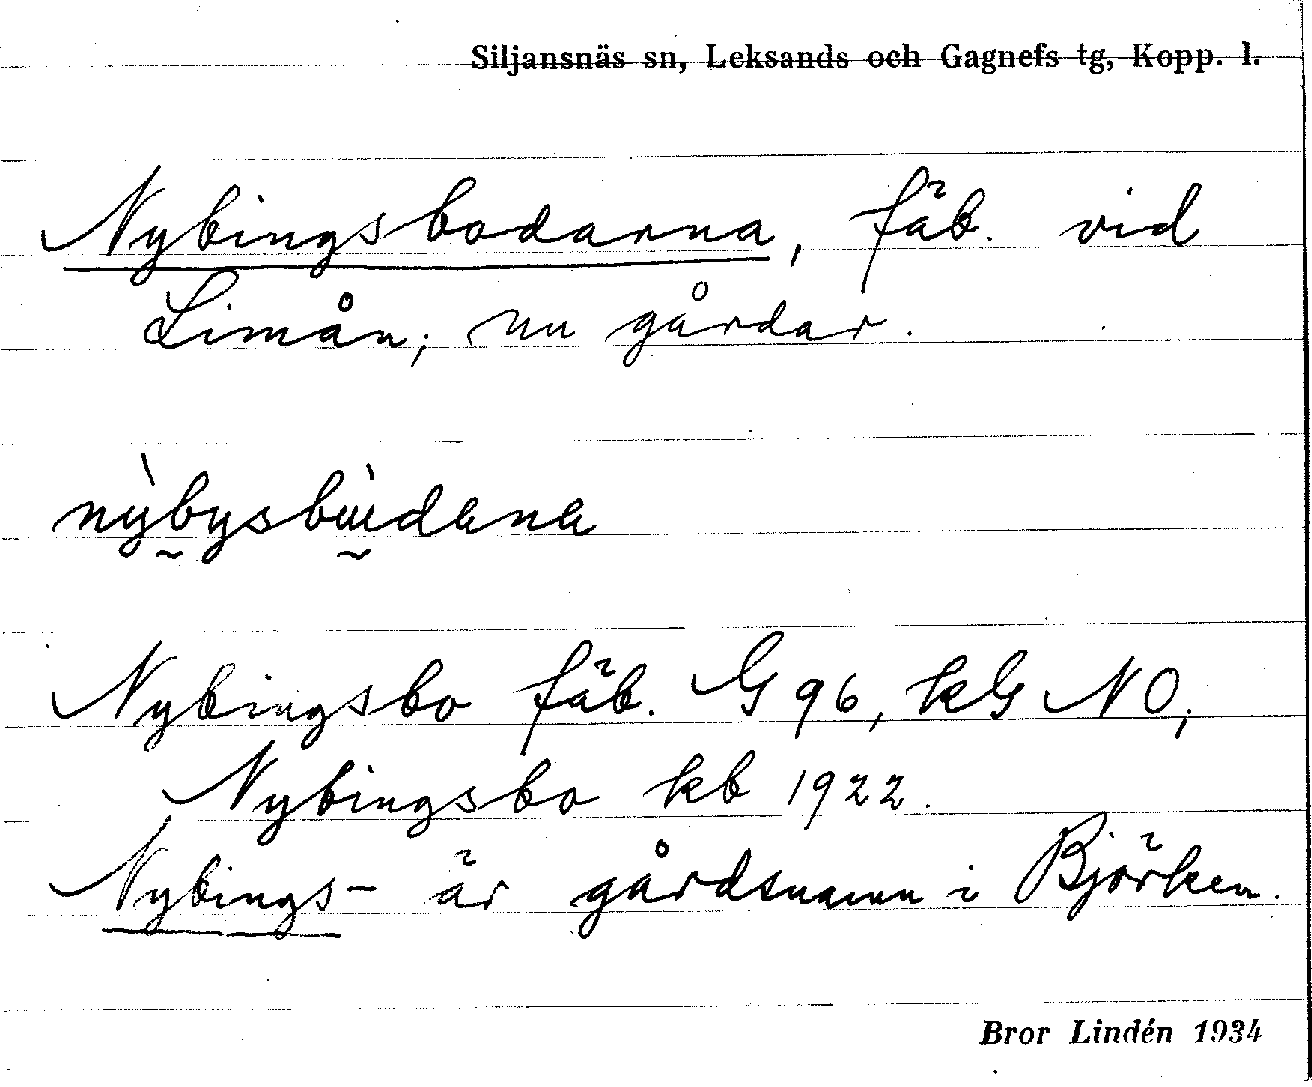 Siljansnäs sn, Leksands och Gagnefs tg, Kopp. l.
Nybingsbodarna, fäb. vid
Limån; nu gårdar.
Nybingsbo fäb. G 96, kG NO;
Nybingsbo kb 1922.
Nybings- är gårdsnamn i Björken.
Bror Lindén 1934